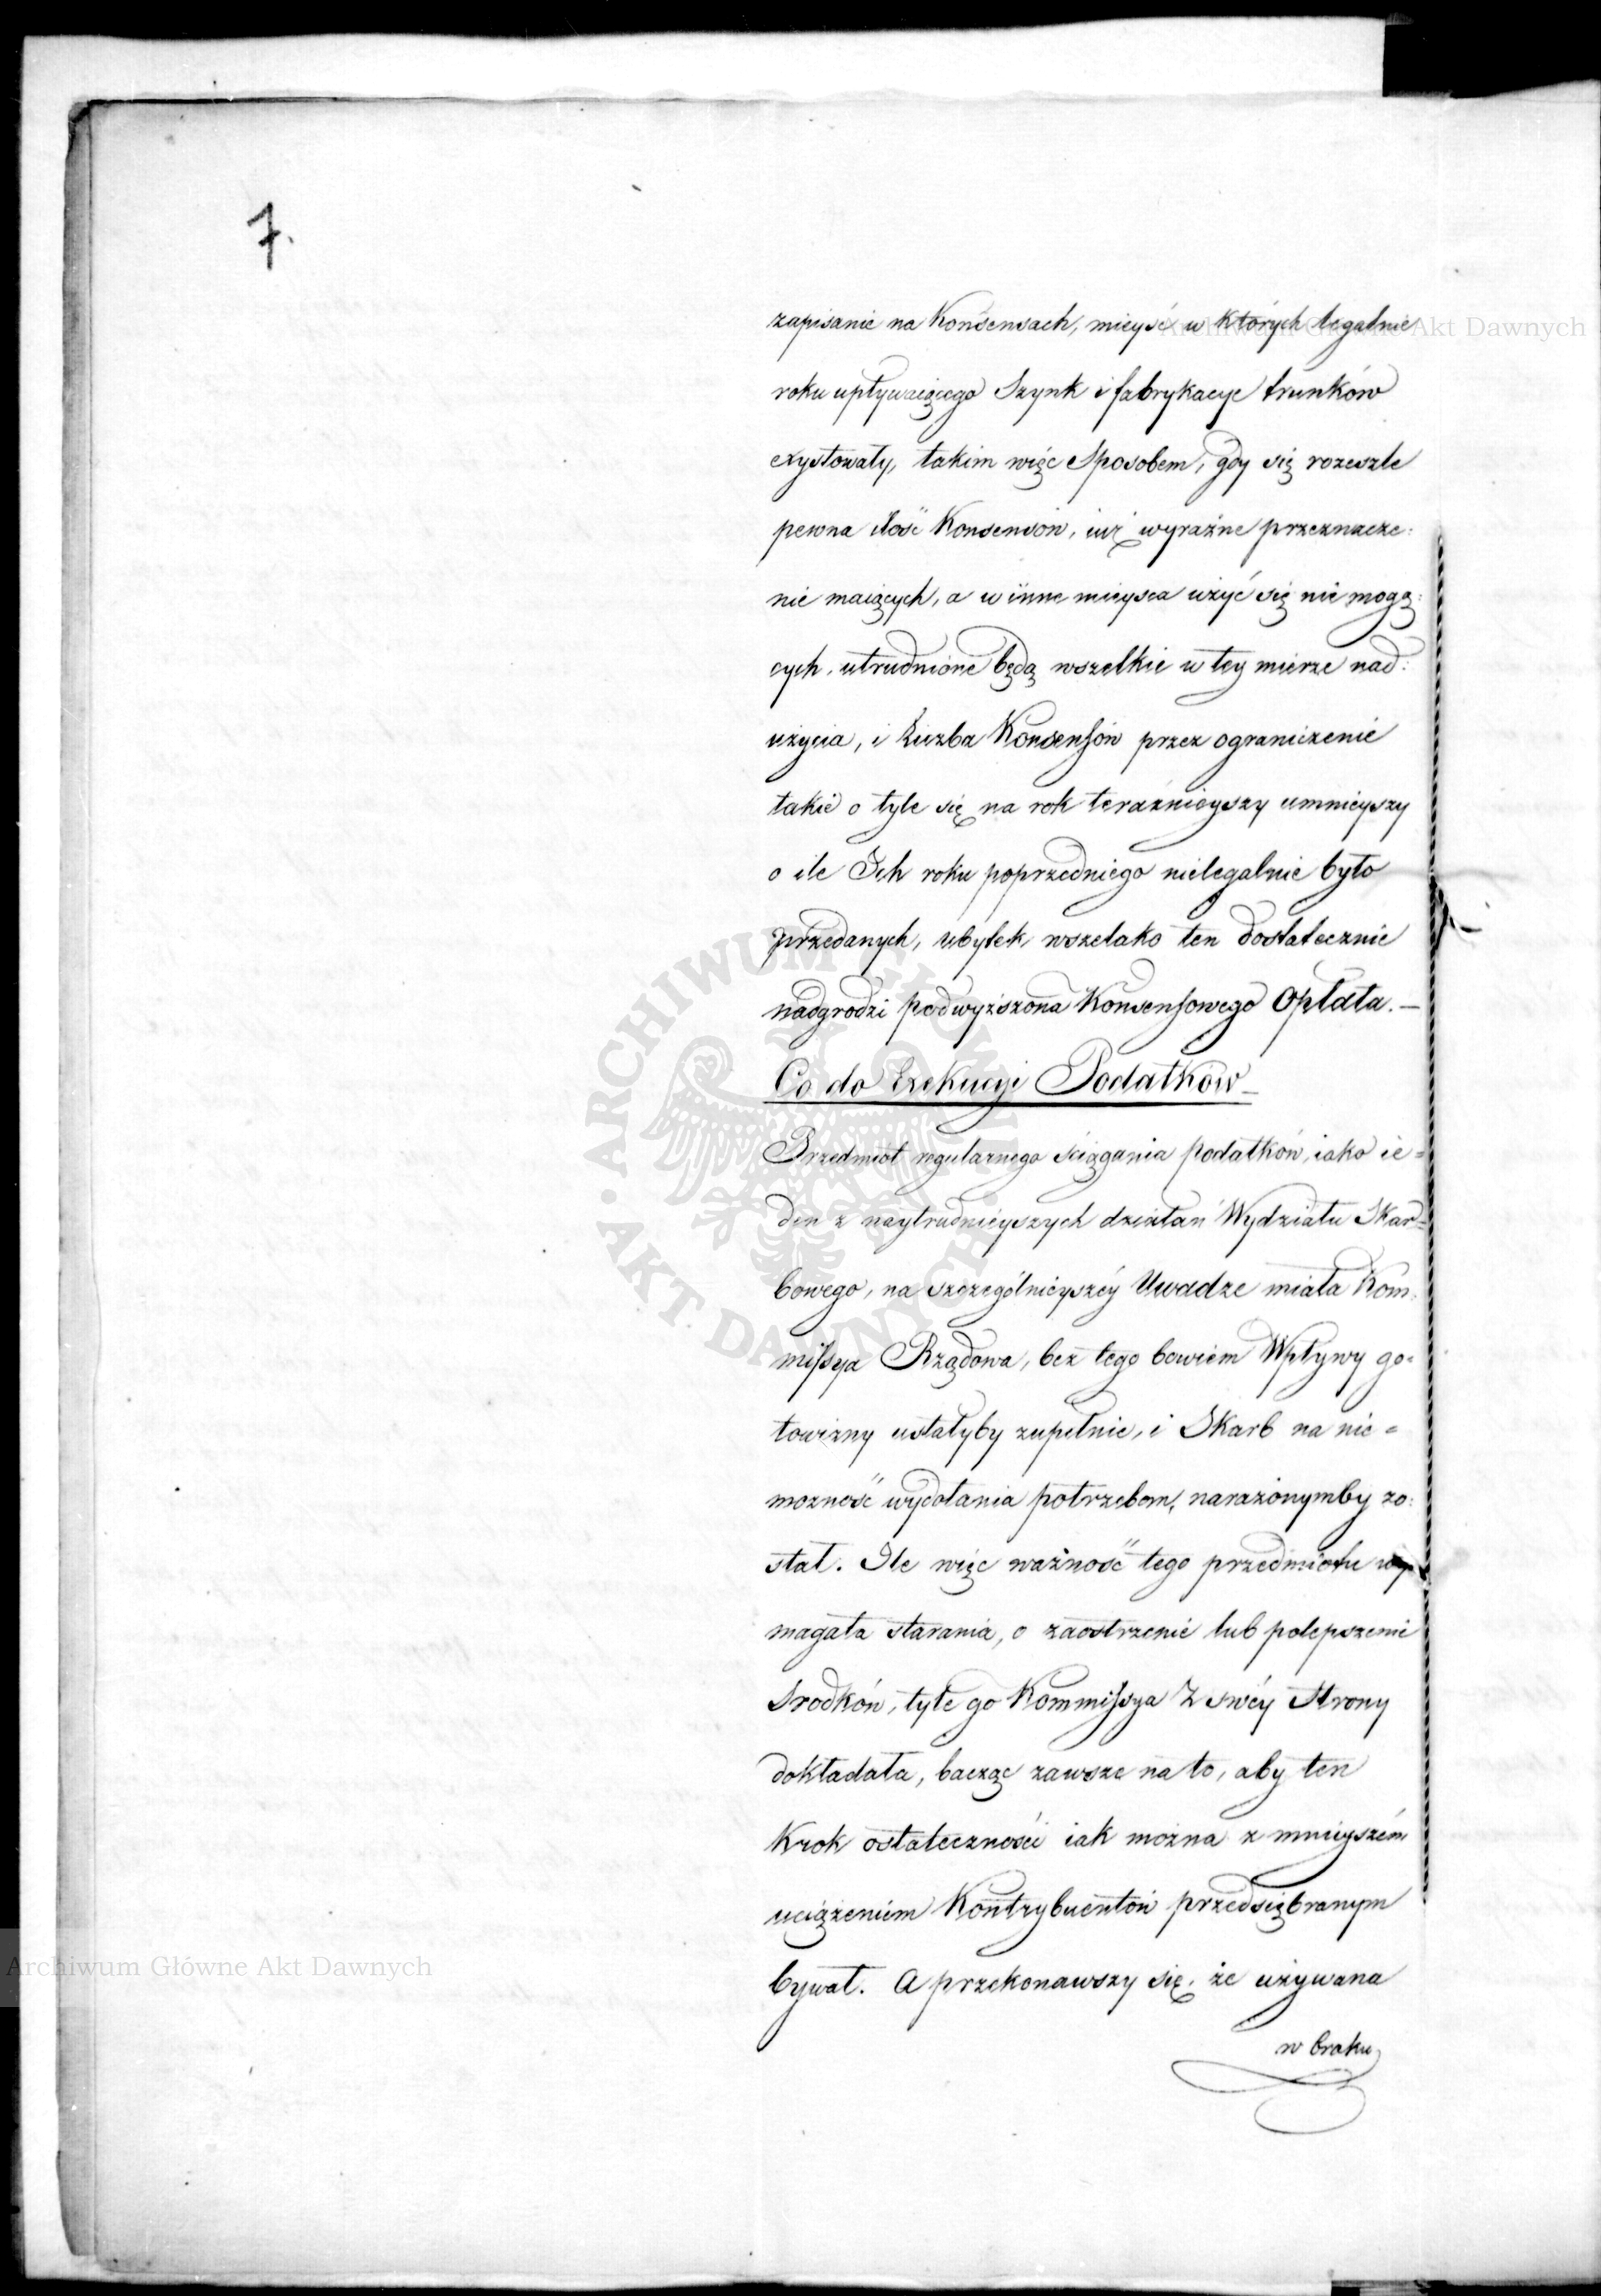 7.
zapisanie na Konsensach, mieysć w których legalnie
roku upływaiącego Szynk i fabrykacye trunków
exystowały, takim więc Sposobem, gdy się rozeszle
pewna ilość Konsensów, iuż wyraźne przeznacze:
nie maiących, a w inne mieysca użyć się nie mogą:
cych, utrudnione będą wszelkie w tey mierze nad:
użycia, i Liczba Konsensów przez ograniczenie
takie o tyle się na rok teraźnieyszy umnieyszy
o ile Ich roku poprzedniego nielegalnie było
przedanych, ubytek wszelako ten dostatecznie
nadgrodzi podwyższona Konsensowego Opłata. —
Co do Exekucyi Podatków
Przedmiot regularnego ściągania podatków, iako ie=
den z naytrudnieyszych działań Wydziału Skar=
bowego, na szczególnieyszéy Uwadze miała Kom:
missya Rządowa, bez tego bowiem Wpływy go=
towizny ustałyby zupełnie, i Skarb na nie=
możność wydołania potrzebom, narażonymby zo:
stał. Ile więc ważność tego przedmiotu wy
magała starania, o zaostrzenie lub polepszenie
Srodków, tyle go Kommissya Z swéy Strony
dokładała, bacząc zawsze na to, aby ten
Krok ostateczności iak można z mnieyszém
uciążeniem Kontrybuentów przedsiębranym
bywał. A przekonawszy się, że używana
w braku
Archiwum Główne Akt Dawnych
Archiwum Główne Akt Dawnych
ARCHIWUM GŁÓWNE AKT DAWNYCH